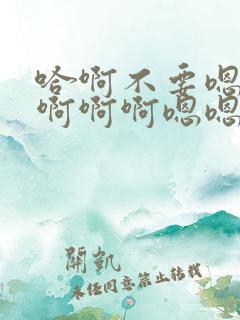 哈啊不要嗯
啊啊啊嗯嗯
開凱
未经同意禁止转载